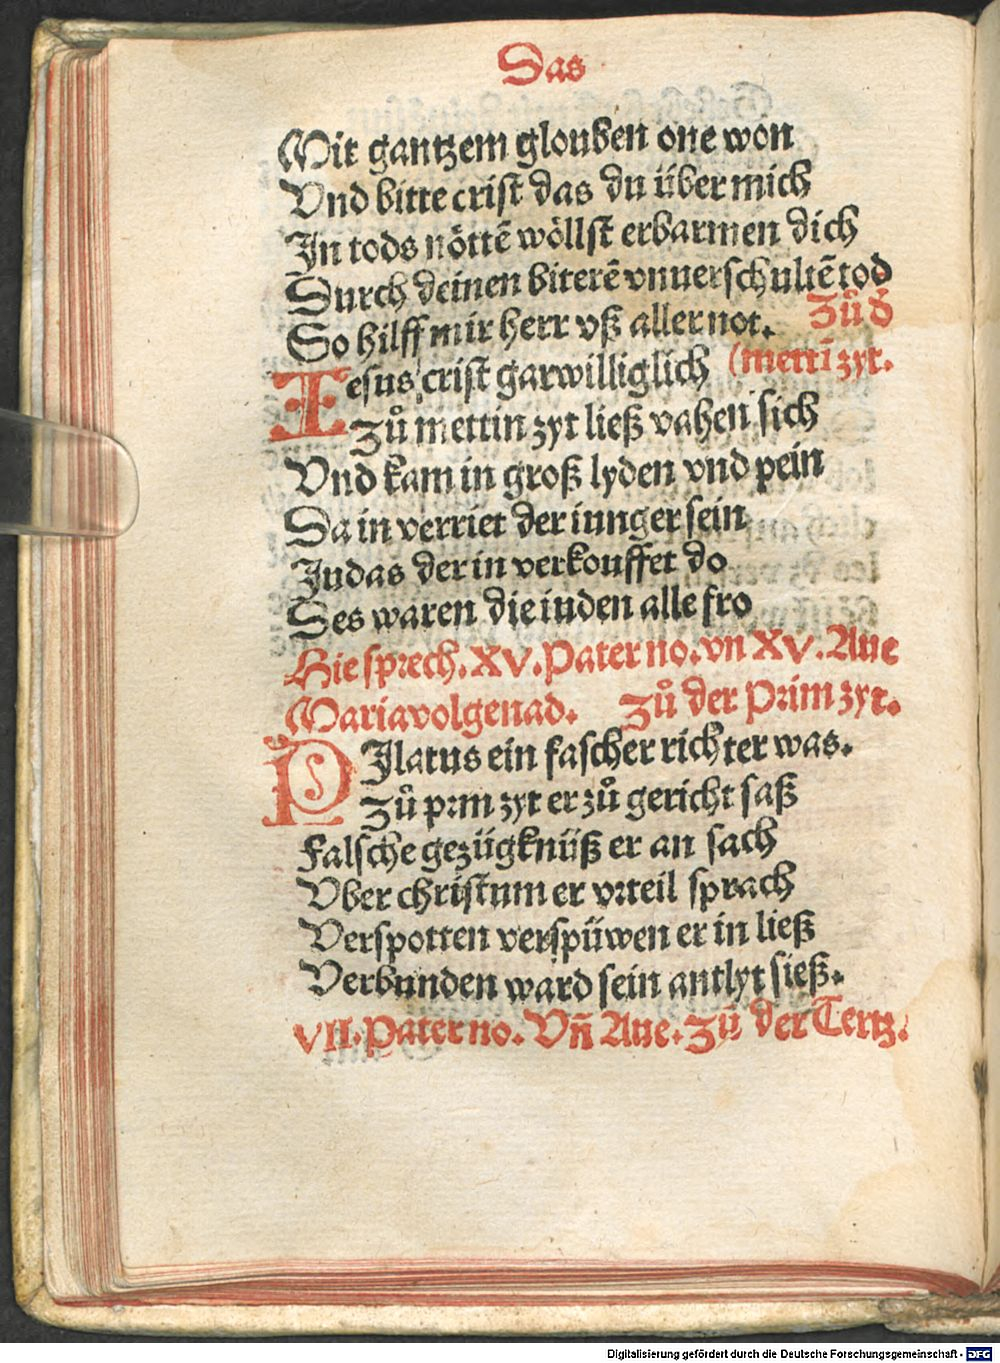 Das
Mit gantzem glouben one won
Vnd bitte crist das du über mich
In tods nöttē wöllst erbarmen dich
Durch deinen biterē vnuerschultē tod
So hilff mir herr vß aller not. Zů d̕
Iesus crist garwilliglich (mettī zyt.
Zů mettin zyt ließ vahen sich
Vnd kam in groß lyden vnd pein
Da in verriet der iunger sein
Iudas der in verkouffet do
Des waren die iuden alle fro
Hie sprech. XV. Pater no. vn XV. Aue
Maria volgenad. Zů der Prim zyt.
PIlatus ein fascher richter was.
Zů prim zyt er zů gericht saß
Falsche gezügknüß er an sach
Vber christum er vrteil sprach
Verspotten verspüwen er in ließ
Verbunden ward sein antlyt sieß.
VII. Pater no. Vñ Aue. Zů der Tertz.
Digitalisierung gefördert durch die Deutsche Forschungsgemeinschaft - DFG